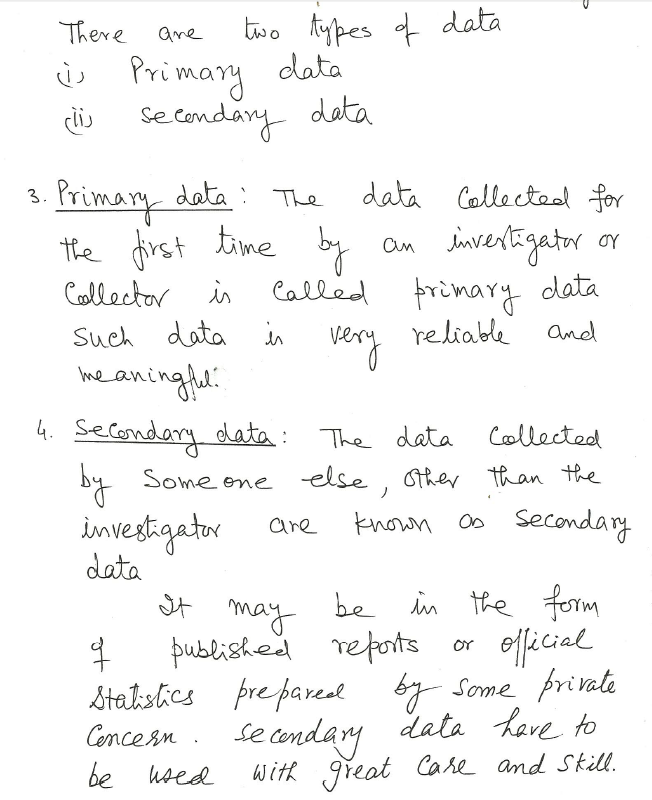 There are two types of data
(i) Primary data
(ii) secondary data
3. Primary data : The data Collected for
the first time by an investigator or
Collector is Called primary data
Such data is very reliable and
meaningful.
4. Secondary data : The data Collected
by Some one else, other than the
investigator are known as Secondary
data
It may be in the form
of published reports or official
Statistics prepared by some private
Concern . secondary data have to
be used with great Care and Skill.